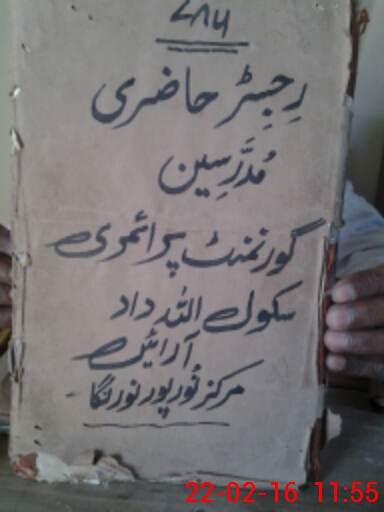 ۷۸۶
رجسٹر حاضری
مُدَرّسین
گورنمنٹ پرائمری
سکول اللہ داد
آرائیں
مرکز نُور پور نورنگا
22-02-16 11:55